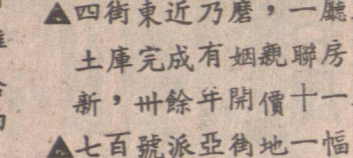 ▲四街東近乃磨，一廳
土庫完成有姻親聯房
新，卅餘年開價十一
▲七百號派亞街地一幅